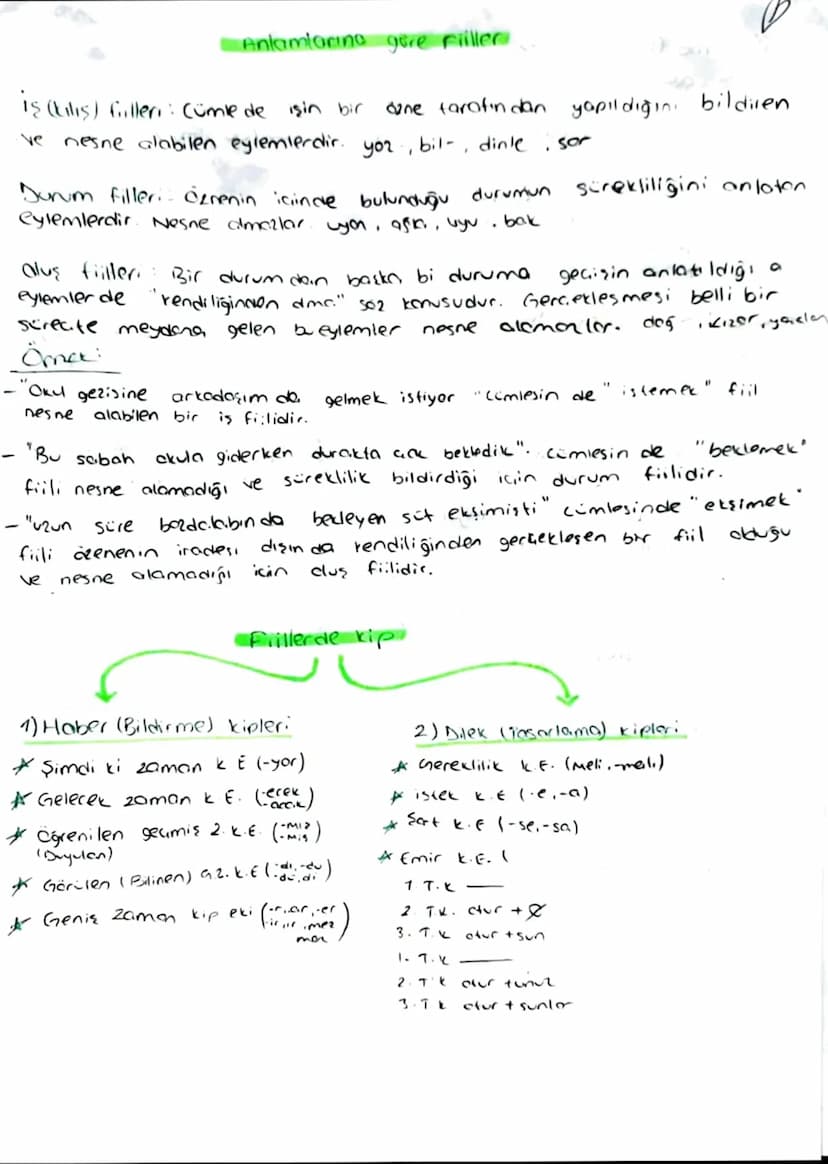 Anlamlarına göre Fiiller
İş (kılış) fiilleri: Cümlede işin bir özne tarafından yapıldığını bildiren
ve nesne alabilen eylemlerdir. yaz, bil-, dinle, sor
Durum filleri: Öznenin içinde bulunduğu durumun sürekliliğini anlatan
eylemlerdir. Nesne almazlar uyan, ağla, uyu, bak
Oluş fiilleri: Bir durumdan başka bi duruma geçişin anlatıldığı
eylemlerde "kendiliğinden olma" söz konusudur. Gerçekleşmesi belli bir
süreçte meydana gelen bu eylemler nesne alamazlar. doğ, kızar,
Örnek:
- "Okul gezisine arkadaşım da gelmek istiyor "cümlesin de "istemek" fiil
nesne alabilen bir iş fiilidir.
- "Bu sabah okula giderken durakta çok bekledik". cümlesin de "beklemek"
fiili nesne alamadığı ve süreklilik bildirdiği için durum fiilidir.
- "uzun süre bozdolabında bekleyen süt ekşimişti" cümlesinde "ekşimek"
fiili özenenin iradesi dışında kendiliğinden gerçekleşen bir fiil olduğu
ve nesne alamadığı için oluş fiilidir.
Fiillerde kip
1) Haber (Bildirme) kipleri
★ Şimdi ki zaman k E (-yor)
★ Gelecek zaman k E. (-ecek -acak)
★ Öğrenilen geçmiş z. k.E. (-mız -mış)
(Duyulan)
★ Görülen (Bilinen) G z. k.E (-dı, -du -dü, di)
★ Geniş zaman kip eki (-r, ar, -er -ir, ır, mez
maz)
2) Dilek (Tasarlama) kipleri
★ Gereklilik k.E. (Meli, -malı)
★ istek k.E (-e, -a)
★ Şart k.E (-se, -sa)
★ Emir k.E. (
1 T.K —
2. T.K. otur + Ø
3. T.K otur + sun
1. T.K —
2. T.K otur + unuz
3. T K otur + sunlar